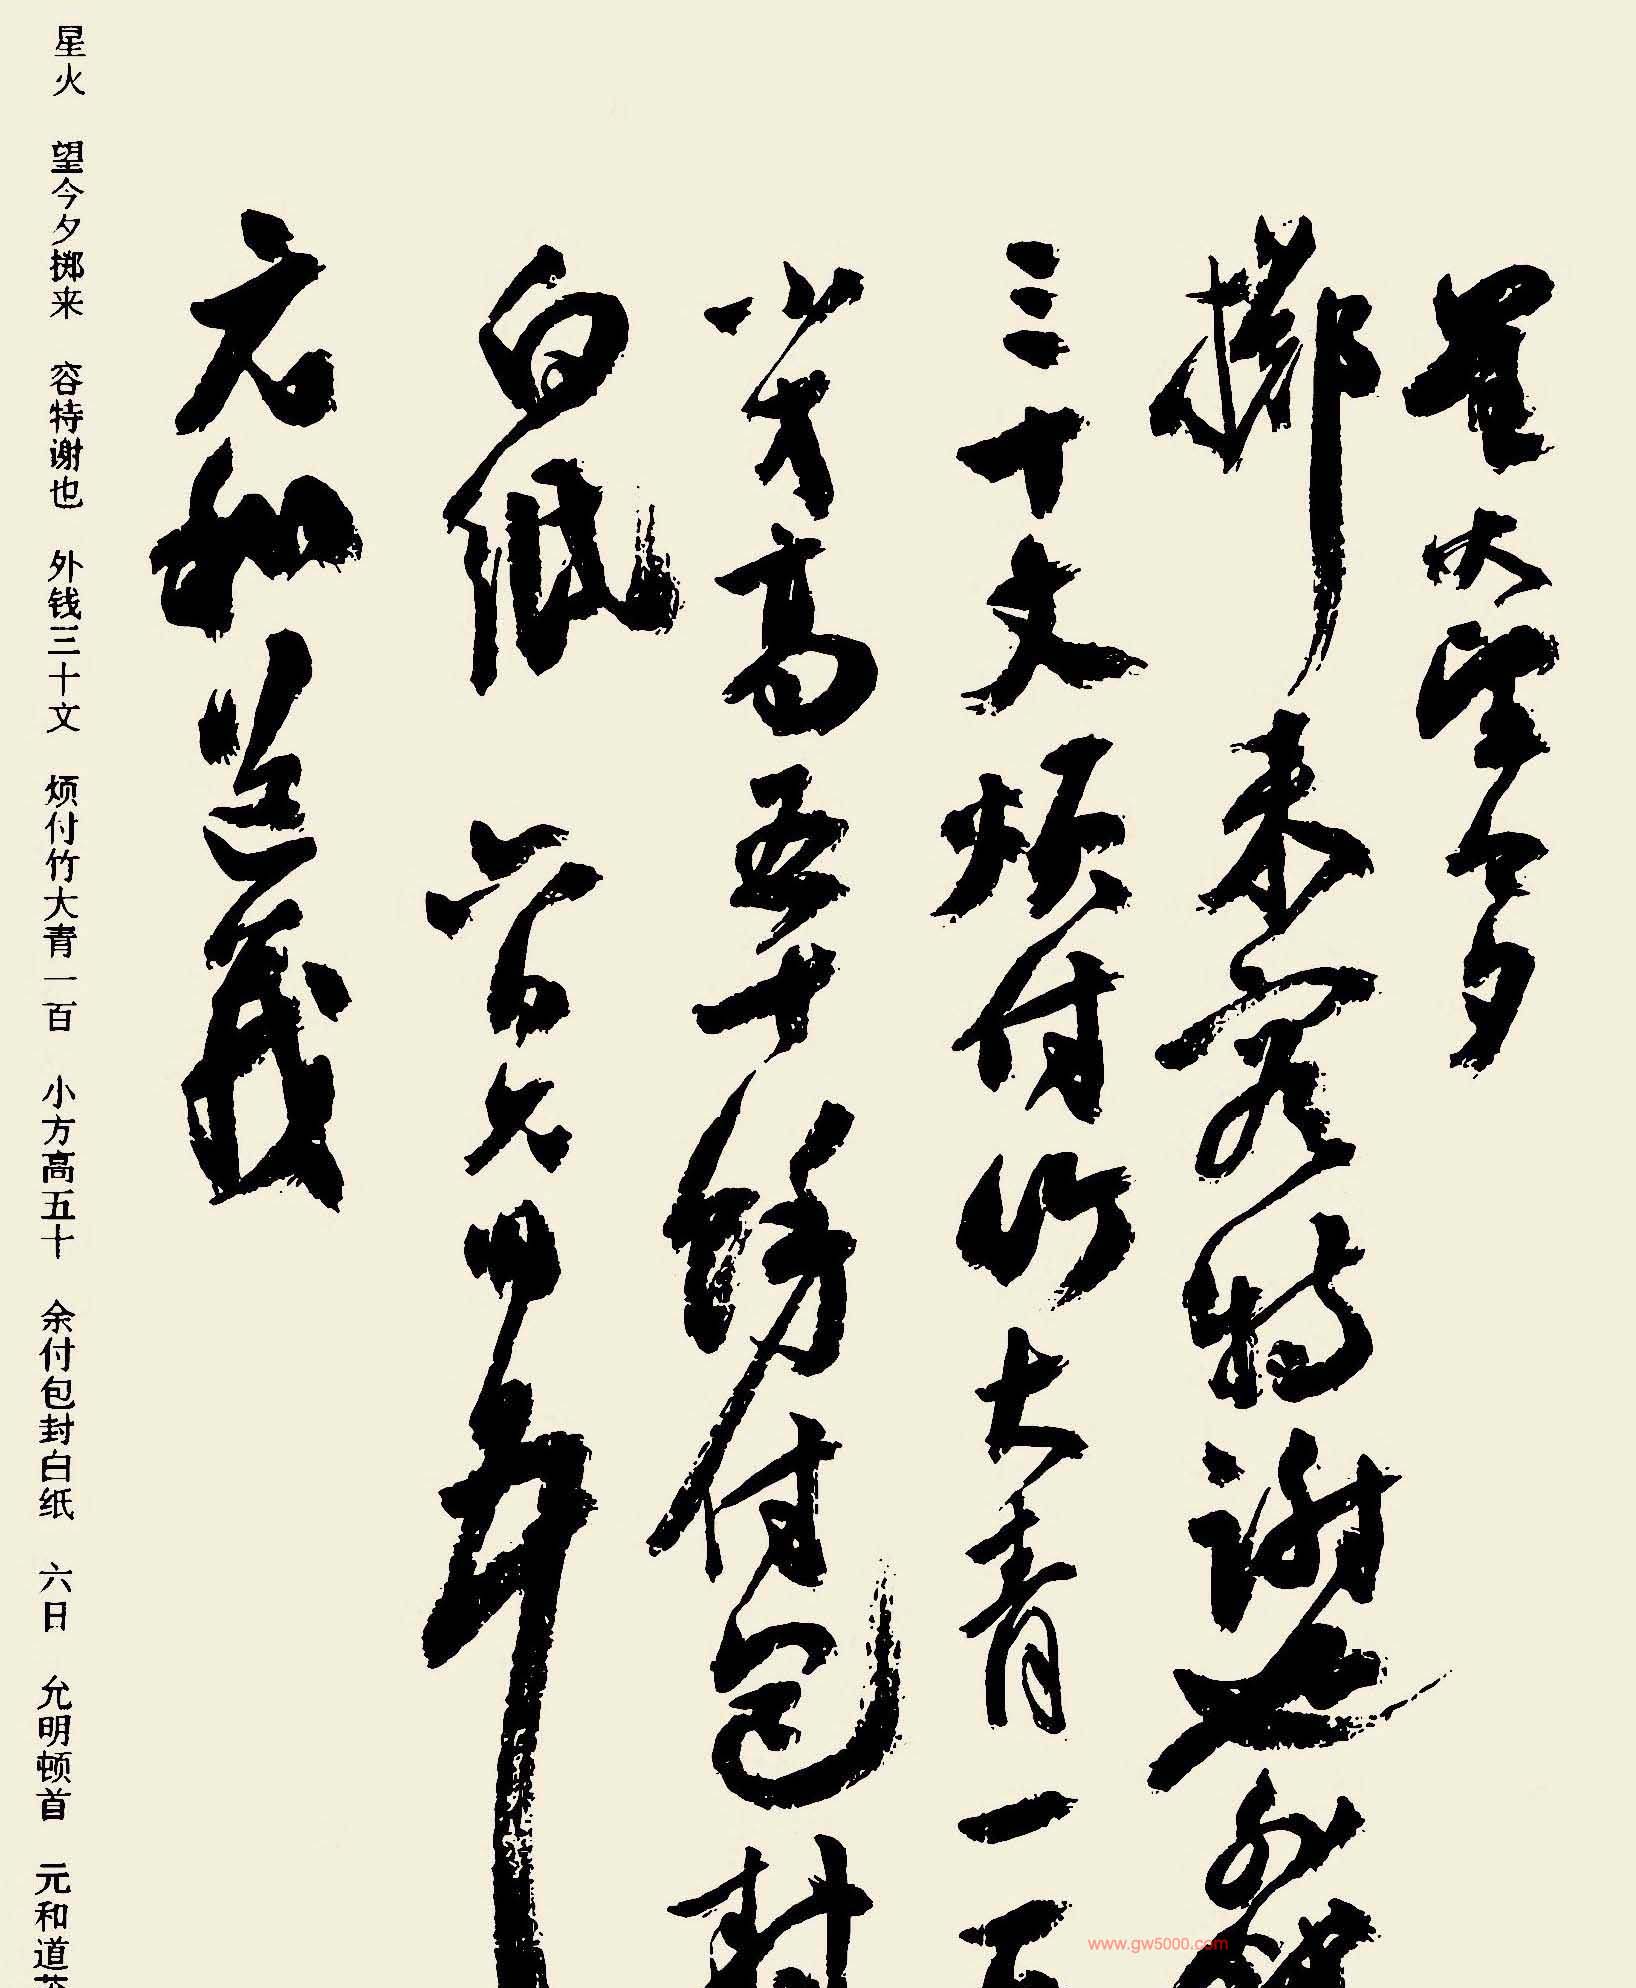 星火望今夕
擲来容特謝也外錢
三十文煩付竹大青一百
小方高五十餘付包封
白紙 六日允明頓首
元和道茂
星火 望今夕掷来 容特谢也 外钱三十文 烦付竹大青一百 小方高五十 余付包封白纸 六日 允明顿首 元和道
www.gw5000.com